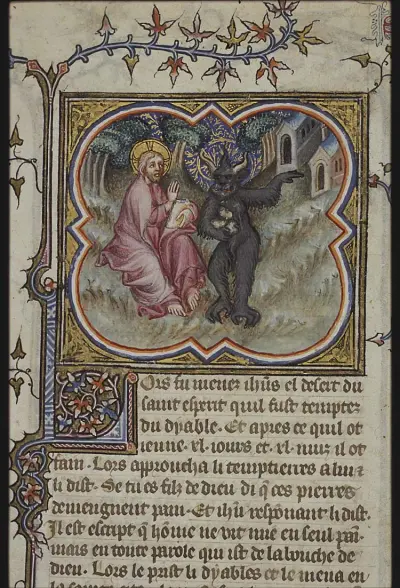 Lors fu menez ih̅us el desert du
saint esperit quil fust temptez
du dyable. Et apres ce quil ot
ieune .xl. iours et .xl. nuiz il ot
fain. Lors approucha li temptierres a lui
li dist. Se tu es filz de dieu di q̅ ces pierres
deviengnent pain. Et ih̅u respo̅nant li dist.
Il est escript q̅ ho̅me ne vit mie en seul pain.
mais en toute parole qui ist de la bouche de
dieu. Lors le prist li dyables et le mena en